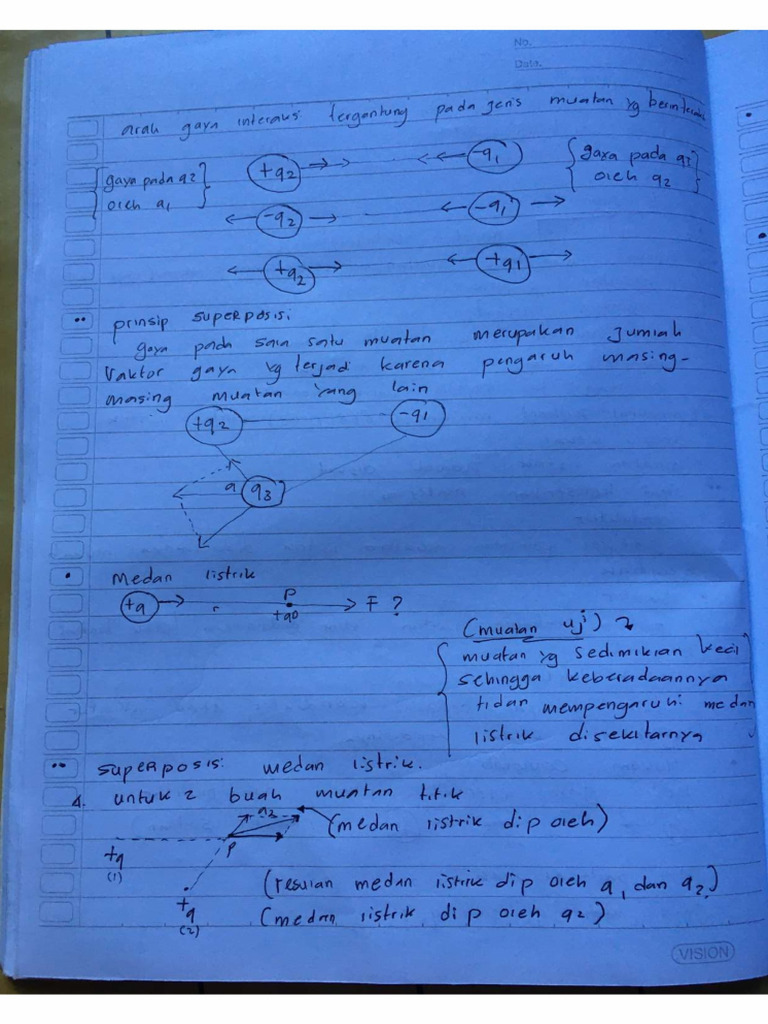 No.
Date.
arah gaya interaksi tergantung pada jenis muatan yg
gaya pada q2 oleh q1
+q2
-q1
gaya pada q2 oleh q2
-q2
-q1
+q2
+q1
prinsip superposisi
gaya pada sala satu muatan merupakan jumlah
vaktor gaya yg terjadi karena pengaruh masing-
masing muatan yang lain
+q2
-q1
a
q3
Medan listrik
+q
r
P
+q0
F ?
(muatan uji)
muatan yg sedimikian kecil
sehingga keberadaannya
tidan mempengaruhi medan
listrik disekitarnya
superposisi medan listrik.
4. untuk 2 buah muatan titik
(medan listrik di p oleh)
P
+q
(1)
(resulan medan listrik di p oleh q1 dan q2)
+q
(2)
(medan listrik di p oleh q2)
VISION